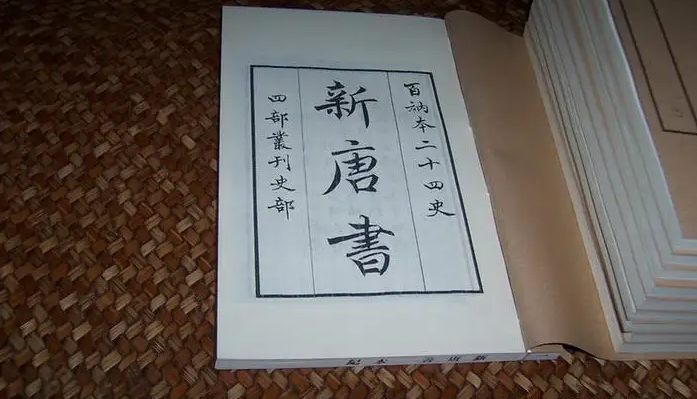 百衲本二十四史
新唐書
四部叢刊史部